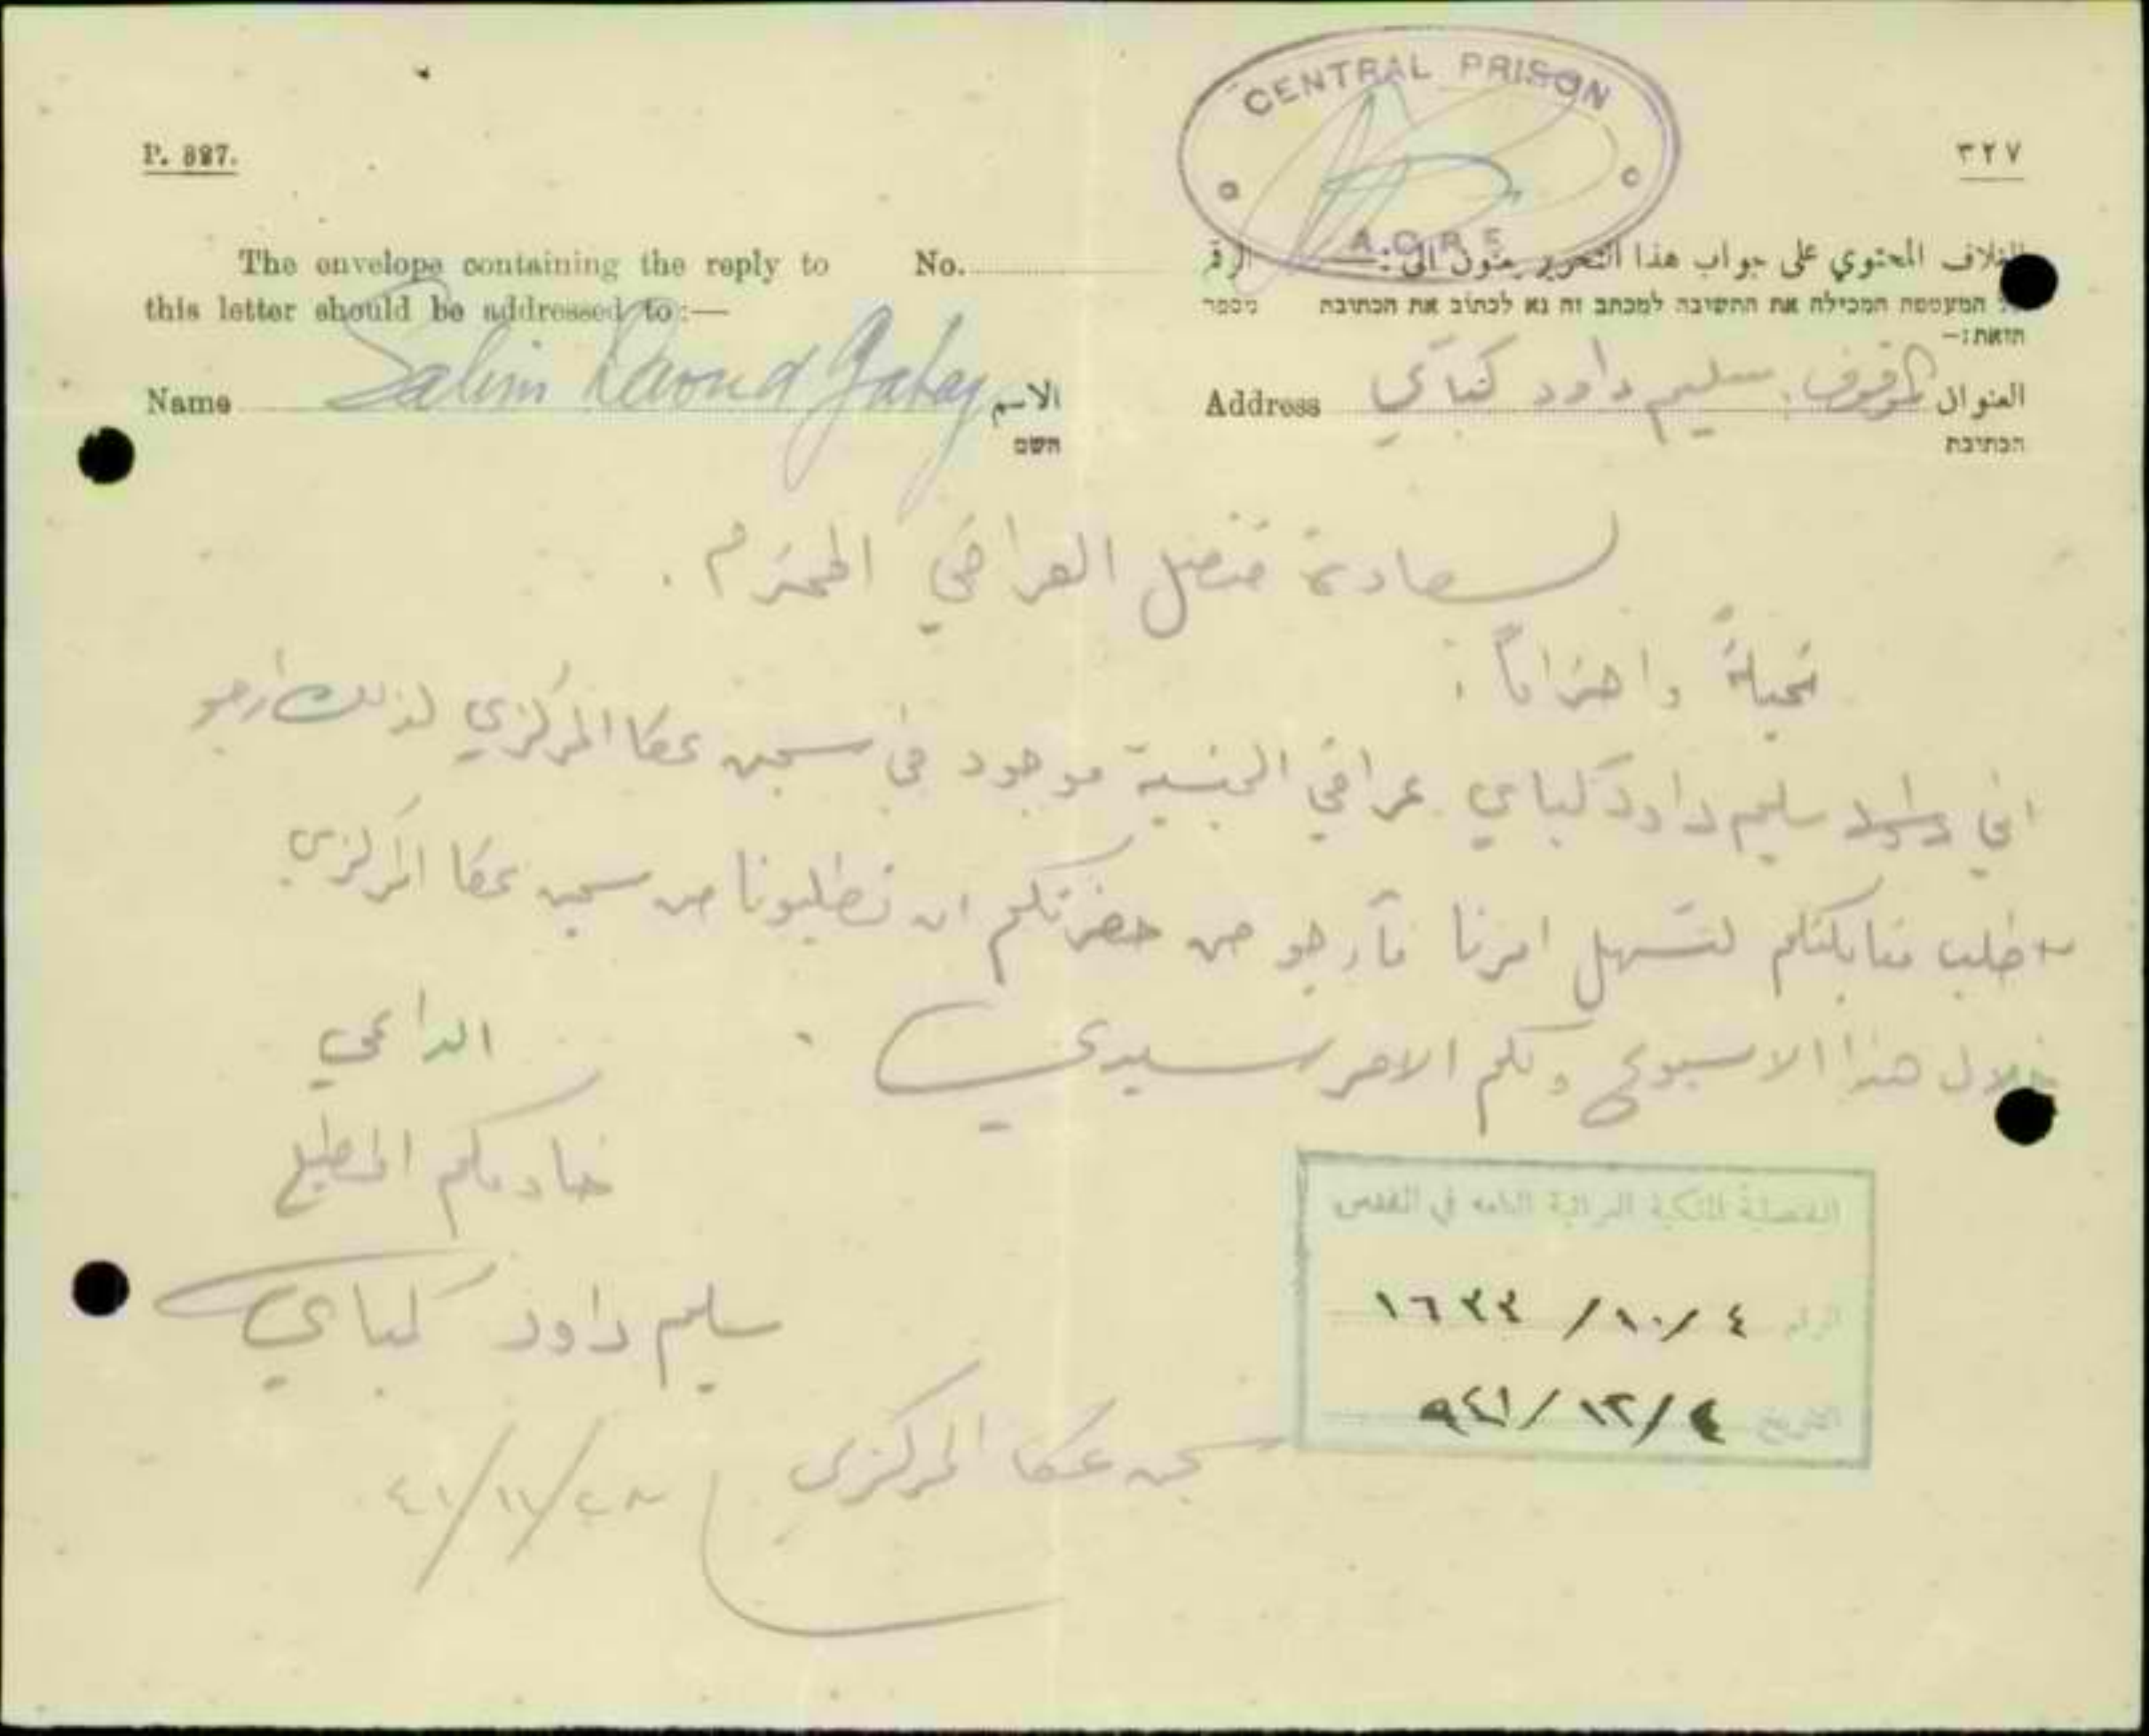 CENTRAL PRISON
ACRE
P. 327.
٣٢٧
The envelope containing the reply to
this letter should be addressed to:—
No.
الرقم
מספר
الغلاف المحتوي على جواب هذا التحرير يعنون الى:
המעטפה המכילה את התשובה למכתב זה נא לכתוב את הכתובת
הזאת:—
Name Salim Daoud Gabay الاسم
השם
Address الموقوف. سليم داود كباي العنوان
הכתובת
لسعادة قنصل العراقي المحترم.
تحيلة واحتراماً.
اني داود سليم داود كباي عراقي الجنسية موجود في سجن عكا المركزي لذلك ارجو
اطلب مقابلتكم لتسهل امرنا فأرجو من حضرتكم ان تطلبونا من سجن عكا المركزي
خلال هذا الاسبوع ولكم الامر سيدي.
الداعي
خادمكم المطيع
سليم داود كباي
سجن عكا المركزي
٤١/١١/٢٨
القنصلية الملكية العراقية العامة في القدس
الرقم ٤/١٠/ ١٦٣٣
التاريخ ٤/١٢/٩٤١